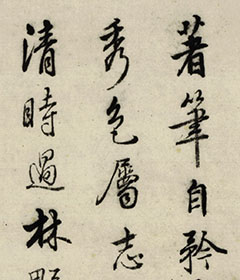 著筆自矜
秀色志
清時過林